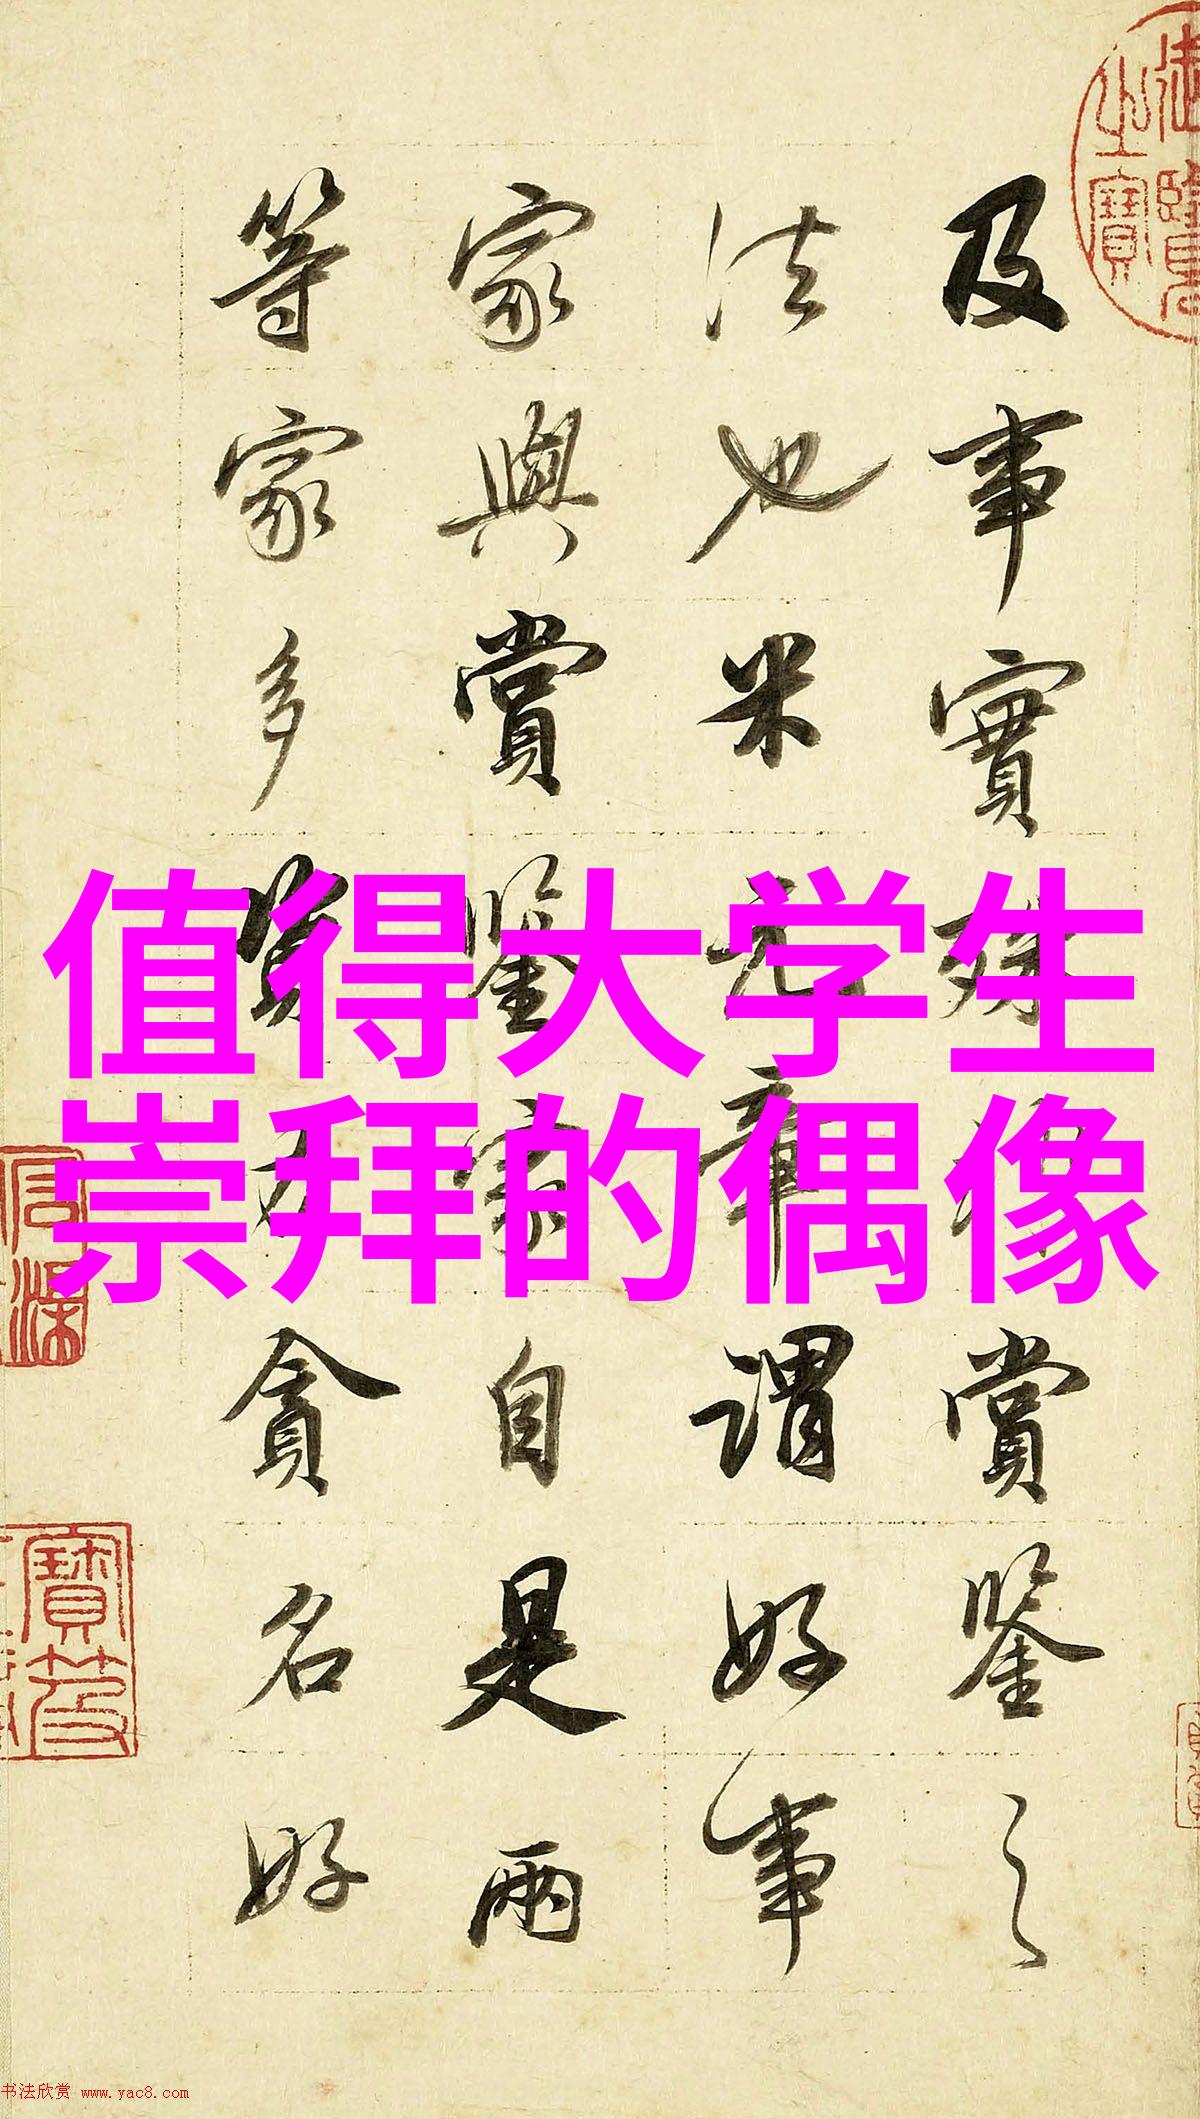 值得大学生
崇拜的偶像
及事實殊賞鑒之
法也米元章謂好事
家與賞鑒家自是兩
等家多資力貪名好
书法欣赏 www.yac8.com